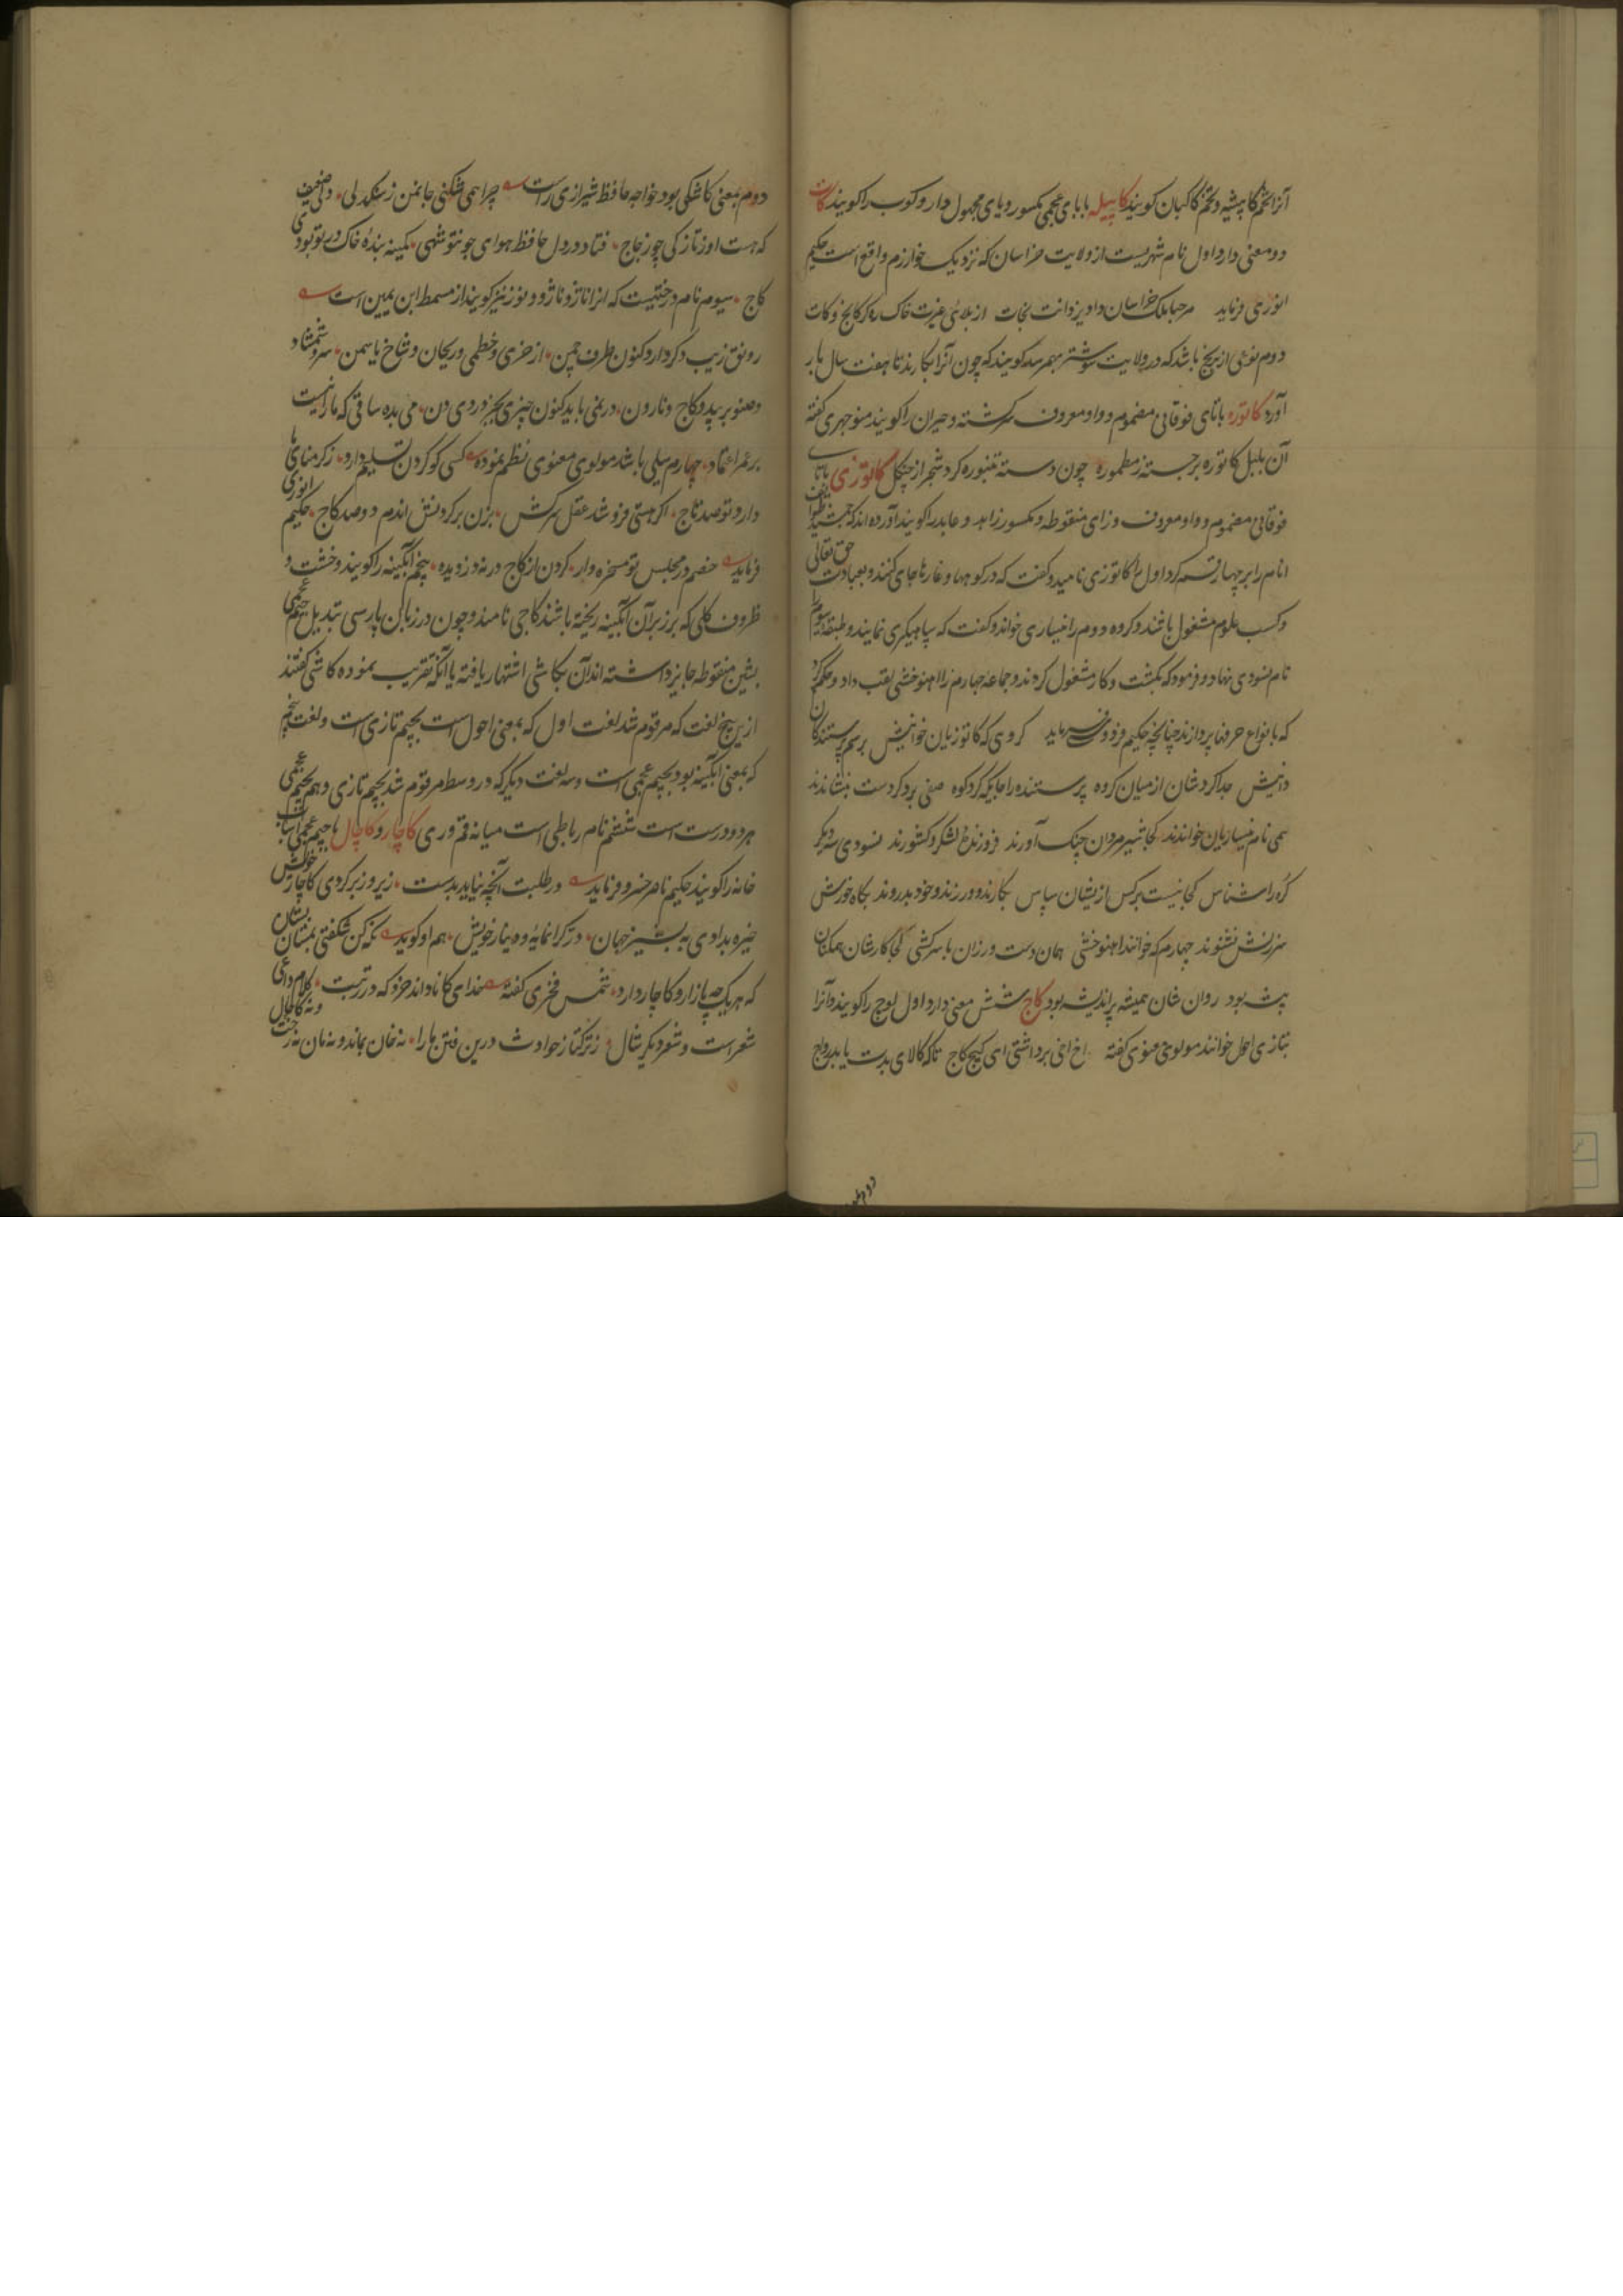 آنرا تخم کاپشه و تخم کاکیان کویند کاپیله بابای عجمی مکسور و یای مجهول دارو کوب را کویند کات
دو معنی دارد اول نام شهریست از ولایت خراسان که نزدیک خوارزم واقع است حکیم
انوری فرماید مرحبا ملک خراسان داد یزدانت نجات از بلای غیرت خاک ره کرکانج و کات
دوم نوعی از برنج باشد که در ولایت شوشتر بهم رسد کویند که چون آنرا بکارند تا هفت سال بار
آورد کاتوره باتای فوقانی مضموم و واو معروف سرکشته و حیران را کویند منوچهری کفته
آن بلبل کاتوره برجسته ز مطموره چون دسته تنبوره کرد شجر از چنکل کاتوزی باتای
فوقانی مضموم و واو معروف و زای منقوطه مکسور زاهد و عابد را کویند آورده اند که جمشید طوایف
انام را بر چهار قسم کرد اول را کاتوزی نامید و کفت که در کوهها و غارها جای کنند و بعبادت حق تعالی
و کسب علوم مشغول باشند و کروه دوم را نیساری خواند و کفت که سپاهیکری نمایند و طبقه سوم را
نام نسودی نهاد و فرمود که بکشت و کار مشغول کردند و جماعه چهارم را اهنوخشی لقب داد و حکم کرد
که بانواع حرفها پردازند چنانچه حکیم فردوسی فرماید کروهی که کاتوزیان خوانیش برسم پرستندکان
دانیش جدا کردشان از میان کروه پرستنده را جایکه کرد کوه صفی برد کر دست بنشاندند
همی نام نیساریان خواندند کجا شیر مردان جنک آورند فروزنده لشکر و کشورند نسودی سه دیکر
کره را شناس کجا نیست بر کس ازیشان سپاس بکارند و ورزند و خود بدروند بکاه خورش
سرزنش نشنوند چهارم که خوانند اهنوخشی همان دست ورزان با سرکشی کجا کارشان همکنان
پیشه بود روان شان همیشه پر اندیشه بود کاج شش معنی دارد اول لوچ را کویند و آنرا
بتازی احول خوانند مولوی معنوی کفته اخ اخی برداشتی ای کیج کاج تا که کالای بدت یابد رواج
دوم بمعنی
دوم بمعنی کاشکی بود خواجه حافظ شیرازی راست چرا همی شکنی جان من ز سنکدلی دل ضعیف
که هست او ز نازکی چو زجاج فتاد در دل حافظ هوای چونتو شهی کمینه بنده خاک در تو بودی
کاج سیوم نام درختیست که انرا ناژو و ناژو و نوز نیز کویند از مسمط ابن یمین است
رونق زیب دکر دارد کنون طرف چمن از خری و خطمی و ریحان و شاخ یاسمن سرو شمشاد
و صنوبر بید و کاج و نارون درمنی باید کنون چیزی بجز دردی دن می بده ساقی که ما را نیست
بر عمر اعتماد چهارم سیلی باشد مولوی معنوی نظم نموده کسی کو کردن تسلیم دارد ز کرمناهای
دارد تو صد تاج اکر هستی فروشد عقل سرکش بزن بر کردنش اندم دو صد کاج حکیم انوری
فرماید خصم در مجلس تو مسخره وار کردن از کاج در نه دزدیده پنجم آبکینه را کویند و خشت و
ظروف کلی که بر زبر آن آبکینه ریخته باشند کاجی نامند و چون در زبان پارسی تبدیل جیم عجمی
بشین منقوطه جایز داشته اند آن بکاشی اشتهار یافته یا آنکه تقریب نموده کاشی کفتند
ازین پنج لغت که مرقوم شد لغت اول که بمعنی احول است بجیم تازی است و لغت پنجم
که بمعنی آبکینه بود بجیم عجمی است و سه لغت دیکر که در وسط مرقوم شد بجیم تازی و هم بجیم عجمی
هر دو درست است ششم نام رباطی است میانه قم و ری کاچار و کاچال باجیم عجمی اسباب
خانه را کویند حکیم ناصر خسرو فرماید در طلبت آنچه نیاید بدست زیر و زبر کردی کاچار خویش
خیره بدادی به پشیز جهان در کرانمایه و دینار خویش هم او کوید نکه کن شکفتی بمستان بستان
که هر یک چه بازار و کاچار دارد شمس فخری کفته خدای کاناداند خرد که در رتبت کلام داعی
شعر است و شعر دیکر ژاژ ز ترکتاز حوادث درین فتن ما را نه خان بماند و نه مان نه رخت و نه کاچال